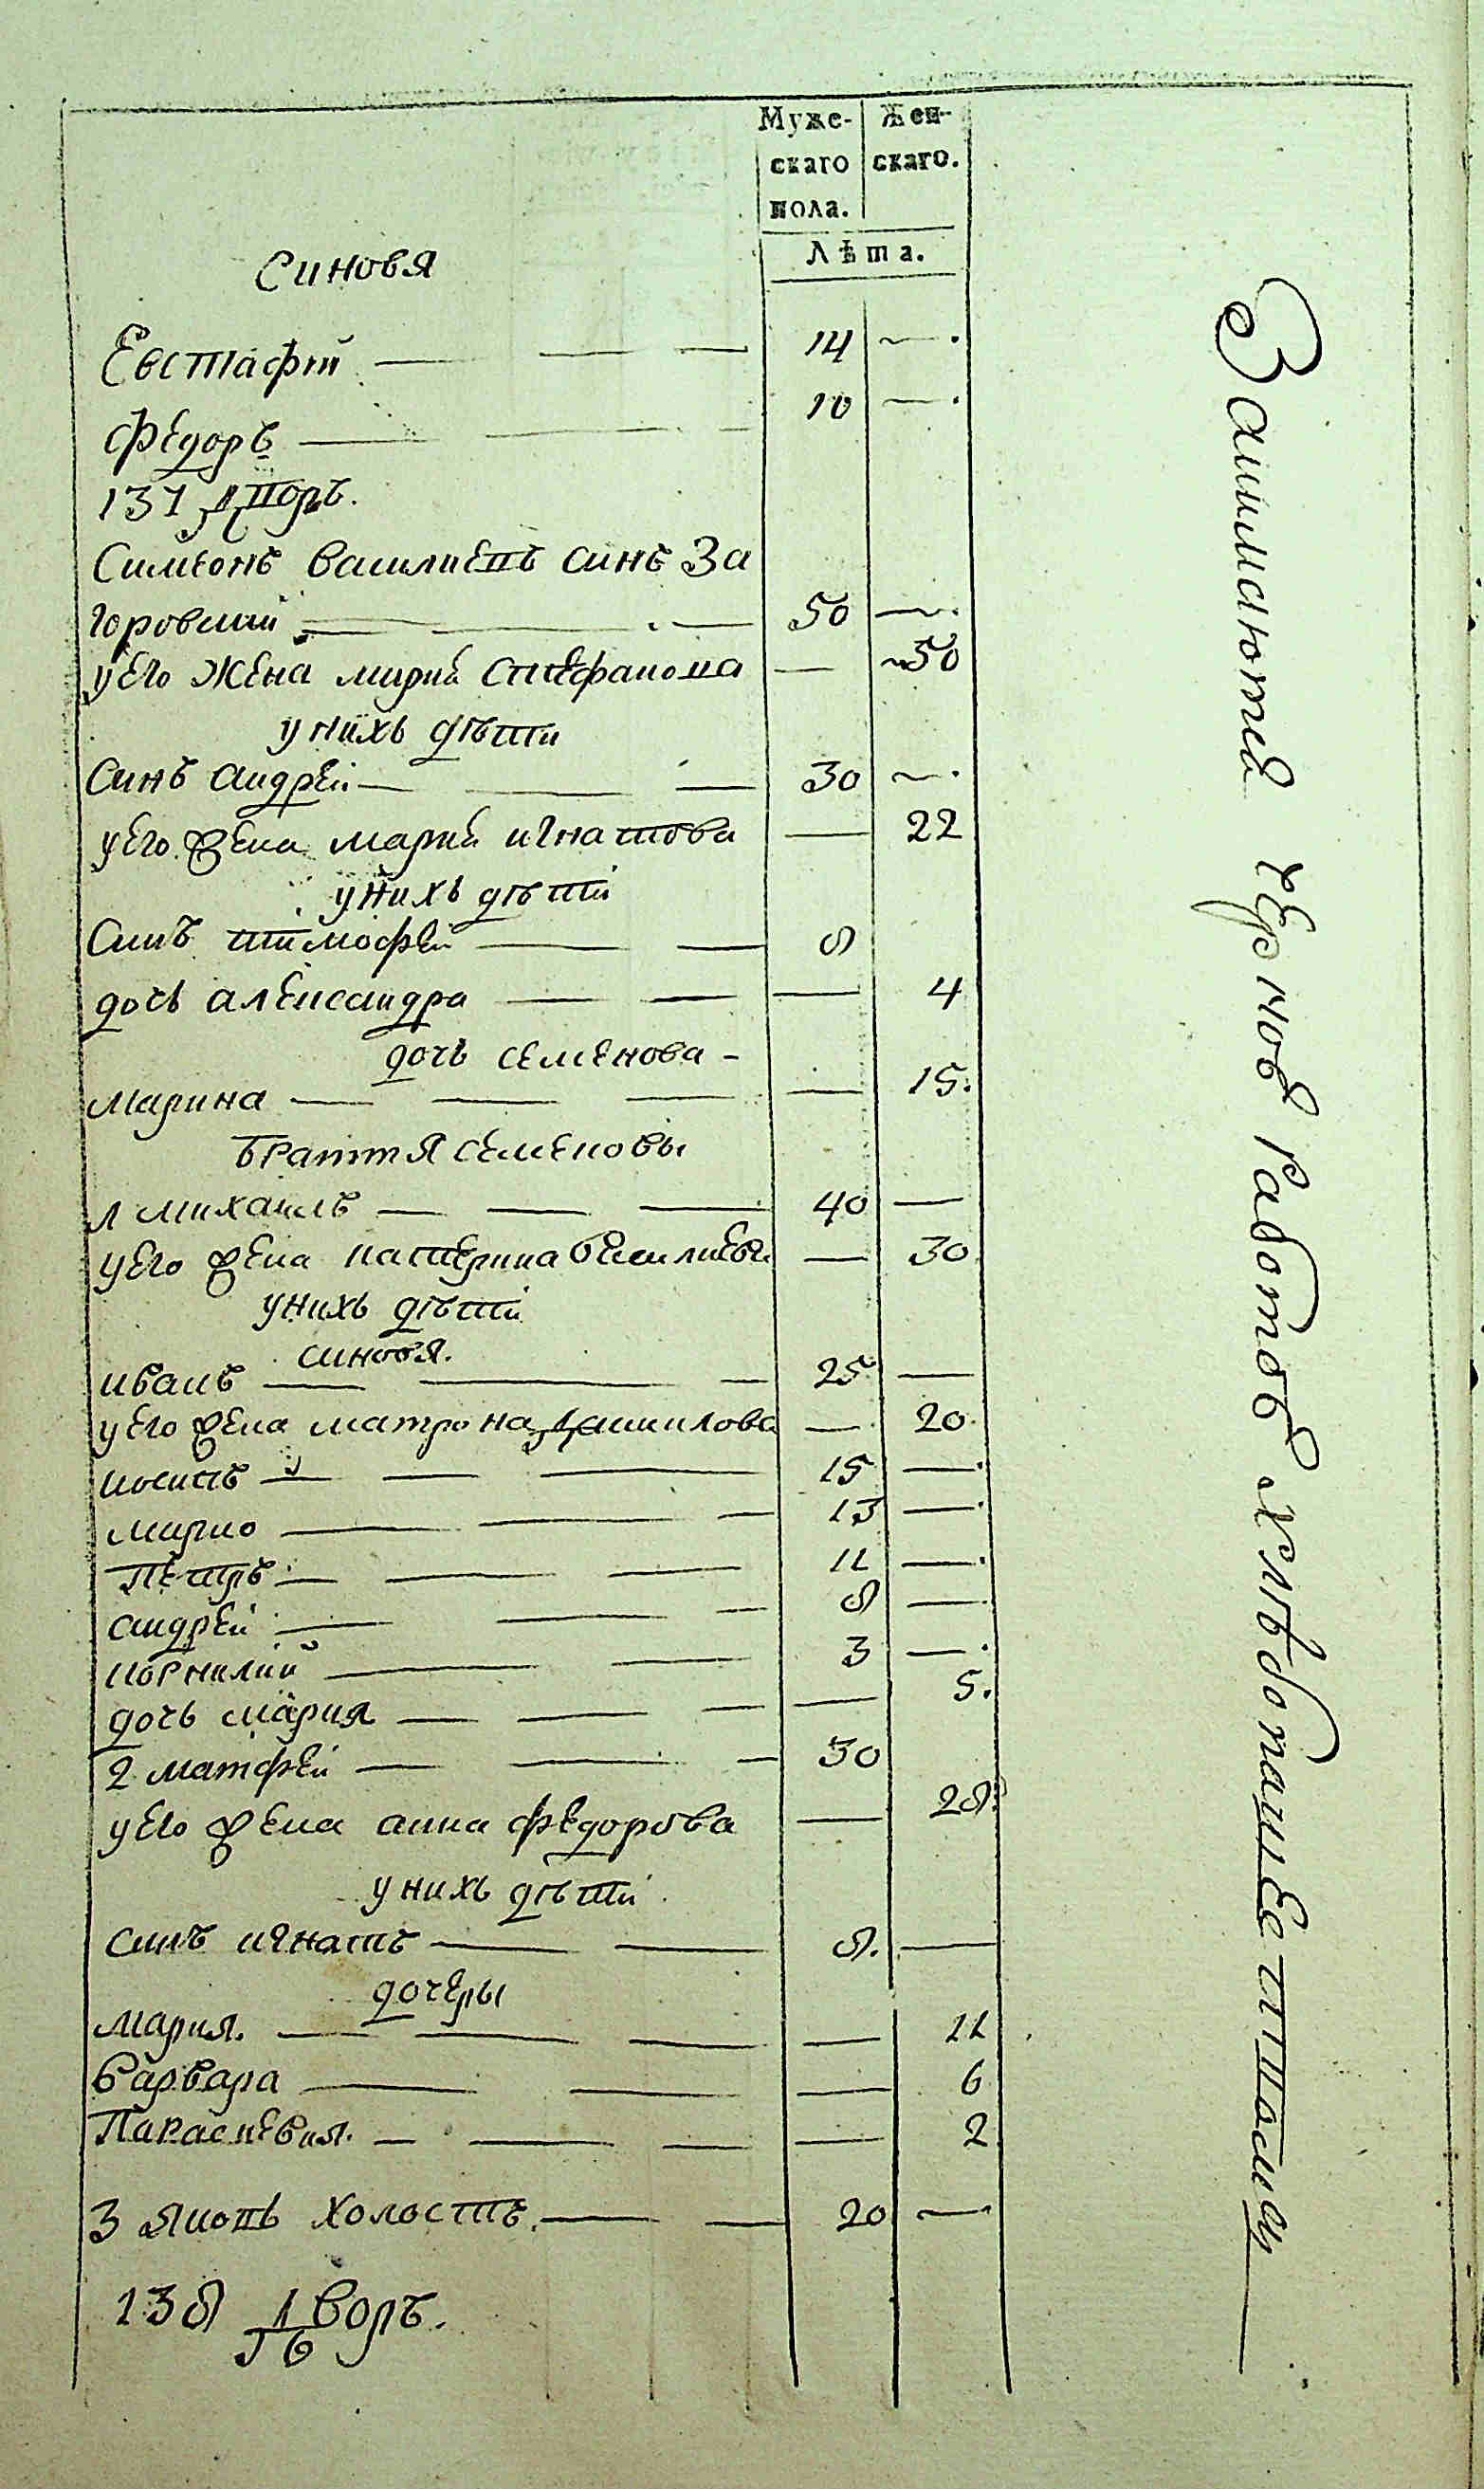 Муже-
скаго
пола.
Жен-
скаго.
Лѣта.
Синовя
Евстафій 14
Федоръ 10
137 Дворъ.
Симеонъ Василиевъ синъ За
горовский 50
у его жена мария Стефанова 50
у нихъ дѣти
Синъ андрей 30
у его жена мария игнатова 22
у нихъ дѣти
Синъ тимофей 8
дочь александра 4
дочь семенова
Марина 15.
браття семеновы
1 михаилъ 40
у его жена катерина василиева 30
у нихъ дѣти
синовя.
иванъ 25
у его жена матрона Данилова 20.
иосипъ 15
марко 13
Петръ 11
андрей 8
корнилий 3
дочь мария 5.
2 матфей 30
у его жена анна федорова 28.
у нихъ дѣти
синъ игнатъ 8.
дочеры
Мария. 11
Варвара 6
Параскевия. 2
3 яковъ холостъ. 20
138 Дворъ.
Занимаются черновъ работов хлѣбопашественову